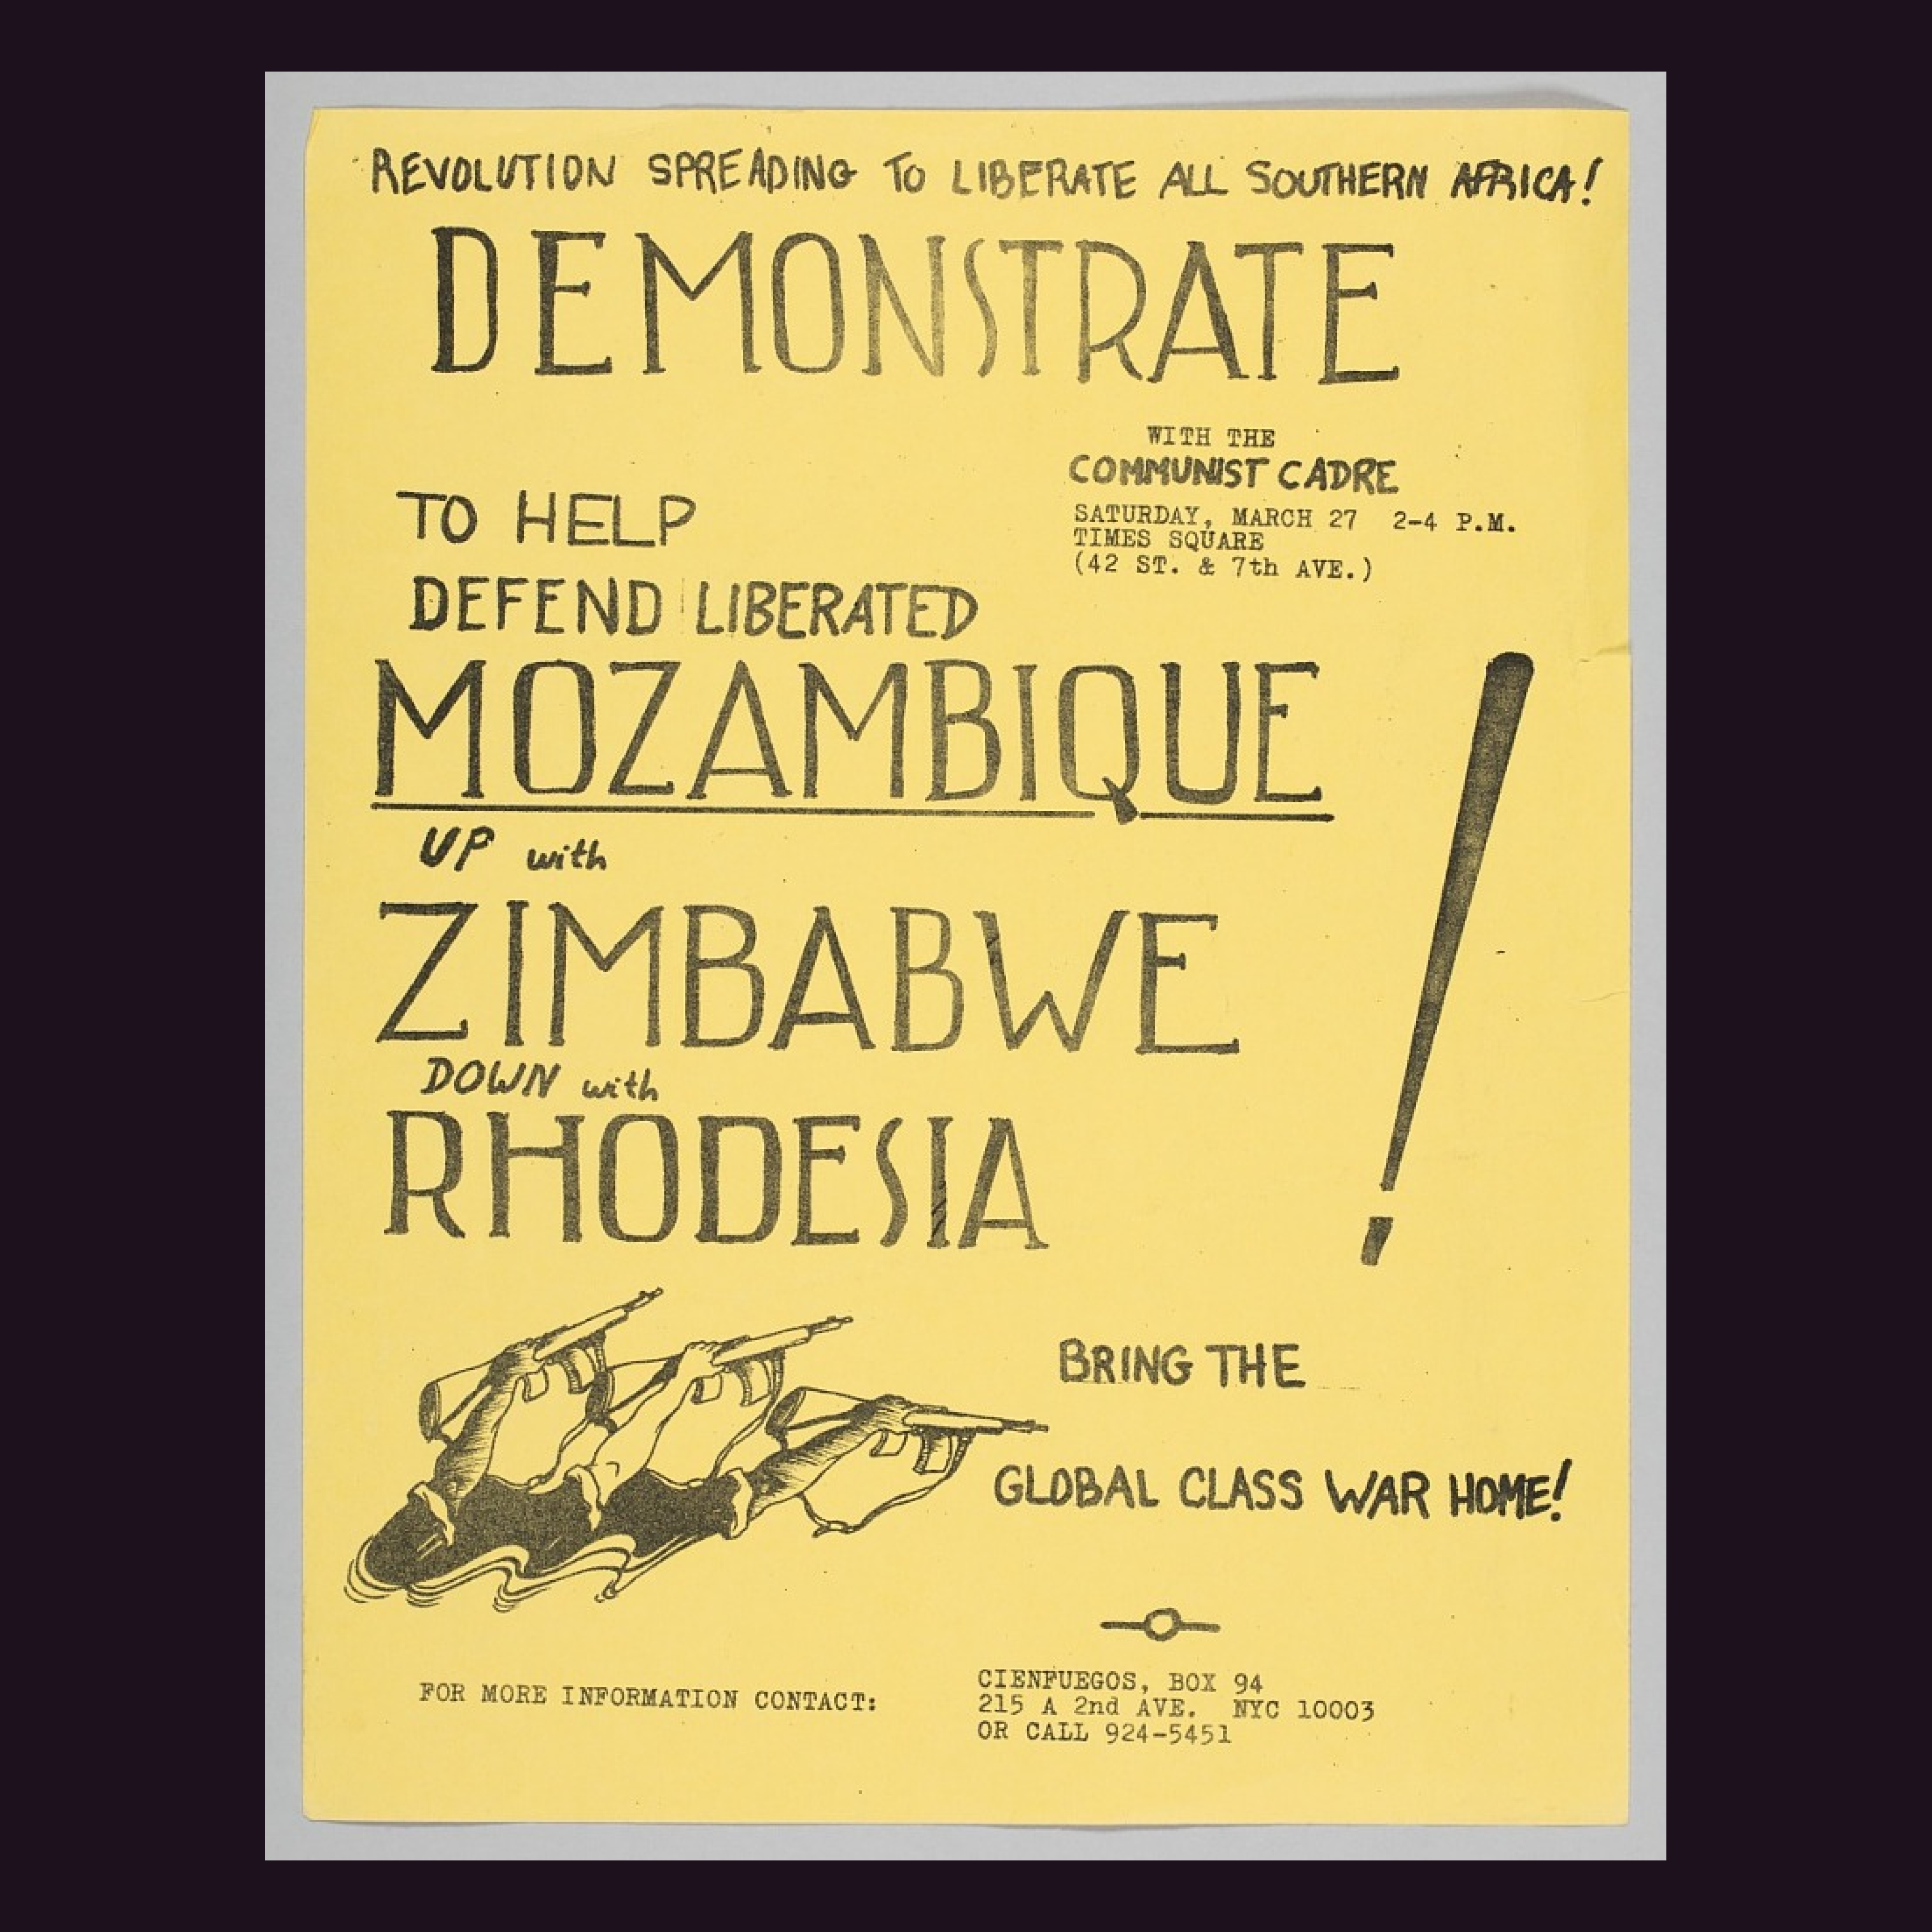 REVOLUTION SPREADING TO LIBERATE ALL SOUTHERN AFRICA!
DEMONSTRATE
WITH THE
COMMUNIST CADRE
SATURDAY, MARCH 27 2-4 P.M.
TIMES SQUARE
(42 ST. & 7th AVE.)
TO HELP
DEFEND LIBERATED
MOZAMBIQUE
UP with
ZIMBABWE
DOWN with
RHODESIA
!
BRING THE
GLOBAL CLASS WAR HOME!
FOR MORE INFORMATION CONTACT:
CIENFUEGOS, BOX 94
215 A 2nd AVE. NYC 10003
OR CALL 924-5451